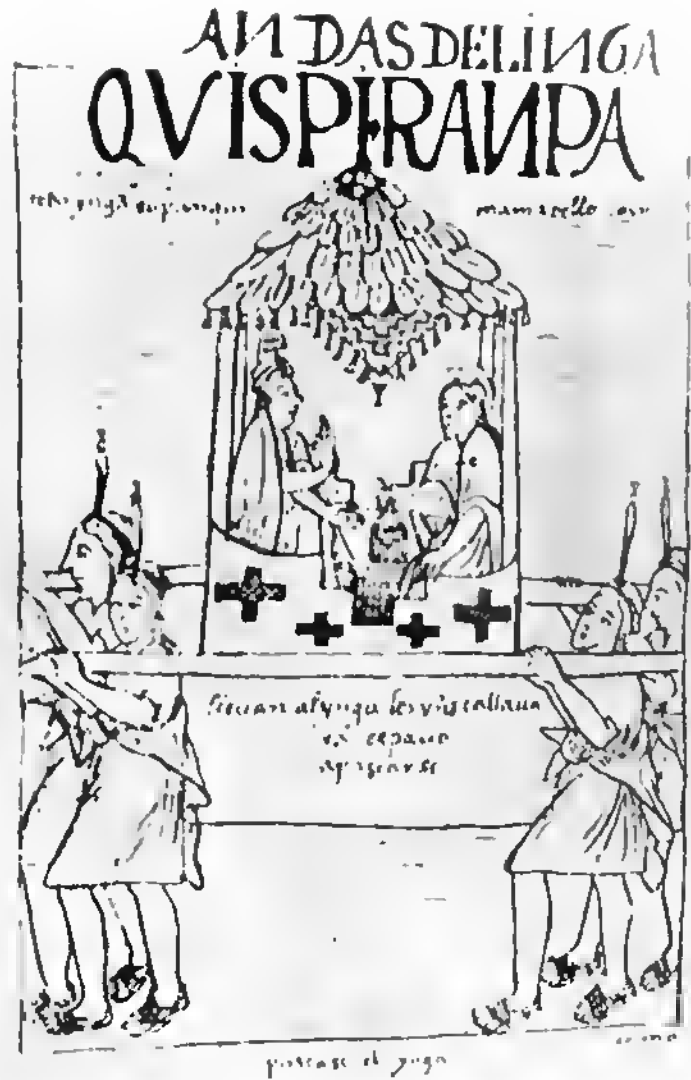 ANDAS DEL INGA
QVISPIRANPA
topa ynga yupanqui
mama ocllo coya
lleuan al ynga los yns callauaya
espacio
apasearse
pasease el ynga